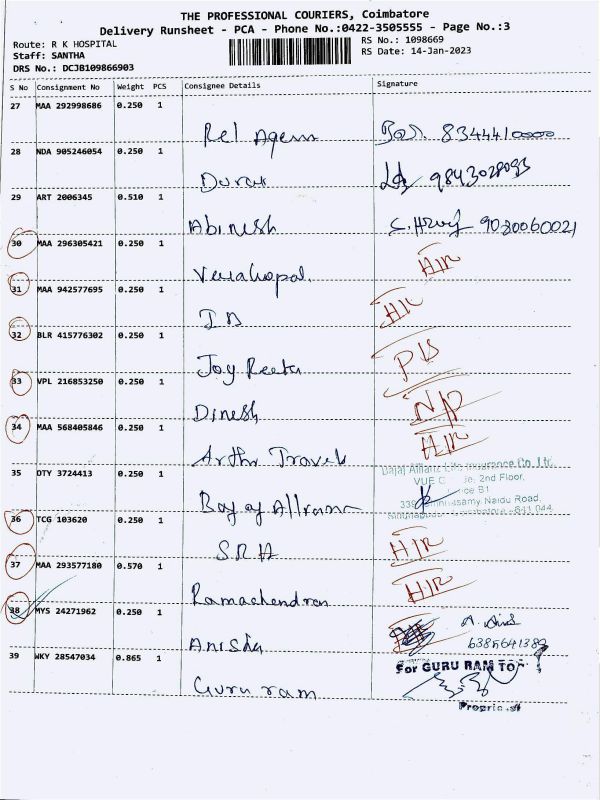 THE PROFESSIONAL COURIERS, Coimbatore
Delivery Runsheet - PCA - Phone No.:0422-3505555 - Page No.:3
Route: R K HOSPITAL
RS No.: 1098669
Staff: SANTHA
RS Date: 14-Jan-2023
DRS No.: DCJB109866903
S No Consignment No Weight PCS Consignee Details Signature
27 MAA 292998686 0.250 1
Rel Agenn 8344410000
28 NDA 905246054 0.250 1
Durai 9843028093
29 ART 2006345 0.510 1
Abinesh 9020060021
30 MAA 296305421 0.250 1
Venahopal. H/R
31 MAA 942577695 0.250 1
I D H/R
32 BLR 415776302 0.250 1
Joy Reeta P/S
33 VPL 216853250 0.250 1
Dinesh N/P
34 MAA 568405846 0.250 1
Arthi Travels H/R
35 OTY 3724413 0.250 1
Bajaj Allianz Life Insurance Co. Ltd.
VUE 2nd Floor,
Naidu Road,
641 044
Bajaj Allianz
36 TCG 103620 0.250 1
SRH H/R
37 MAA 293577180 0.570 1
Ramachendran H/R
38 MYS 24271962 0.250 1
Anisha 6385641389
39 WKY 28547034 0.865 1
For GURU RAM
Guru ram